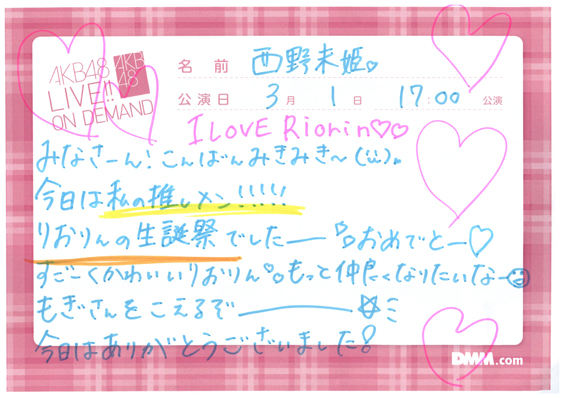 AKB48
LIVE!!
ON DEMAND
AKB
48
名前 西野未姫
公演日 3月1日 17:00 公演
I LOVE Riorin♡♡
みなさーん!こんばんみきみき〜(ii)。
今日は私の推しメン!!!!!
りおりんの生誕祭でしたーー おめでとー♡
すごーくかわいいりおりん もっと仲良くなりたいなー
もぎさんをこえるぞー
今日はありがとうございました!
DMM.com